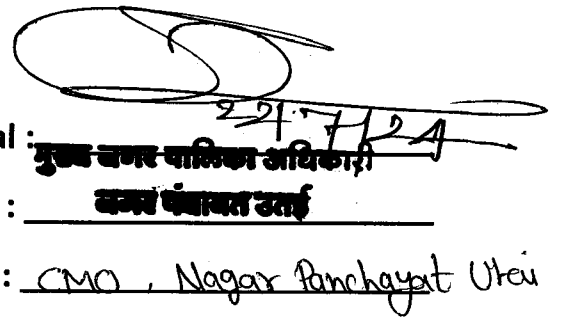 22.7.24
al :
मुख्य नगर पालिका अधिकारी
: नगर पंचायत उतई
: CMO, Nagar Panchayat Utai